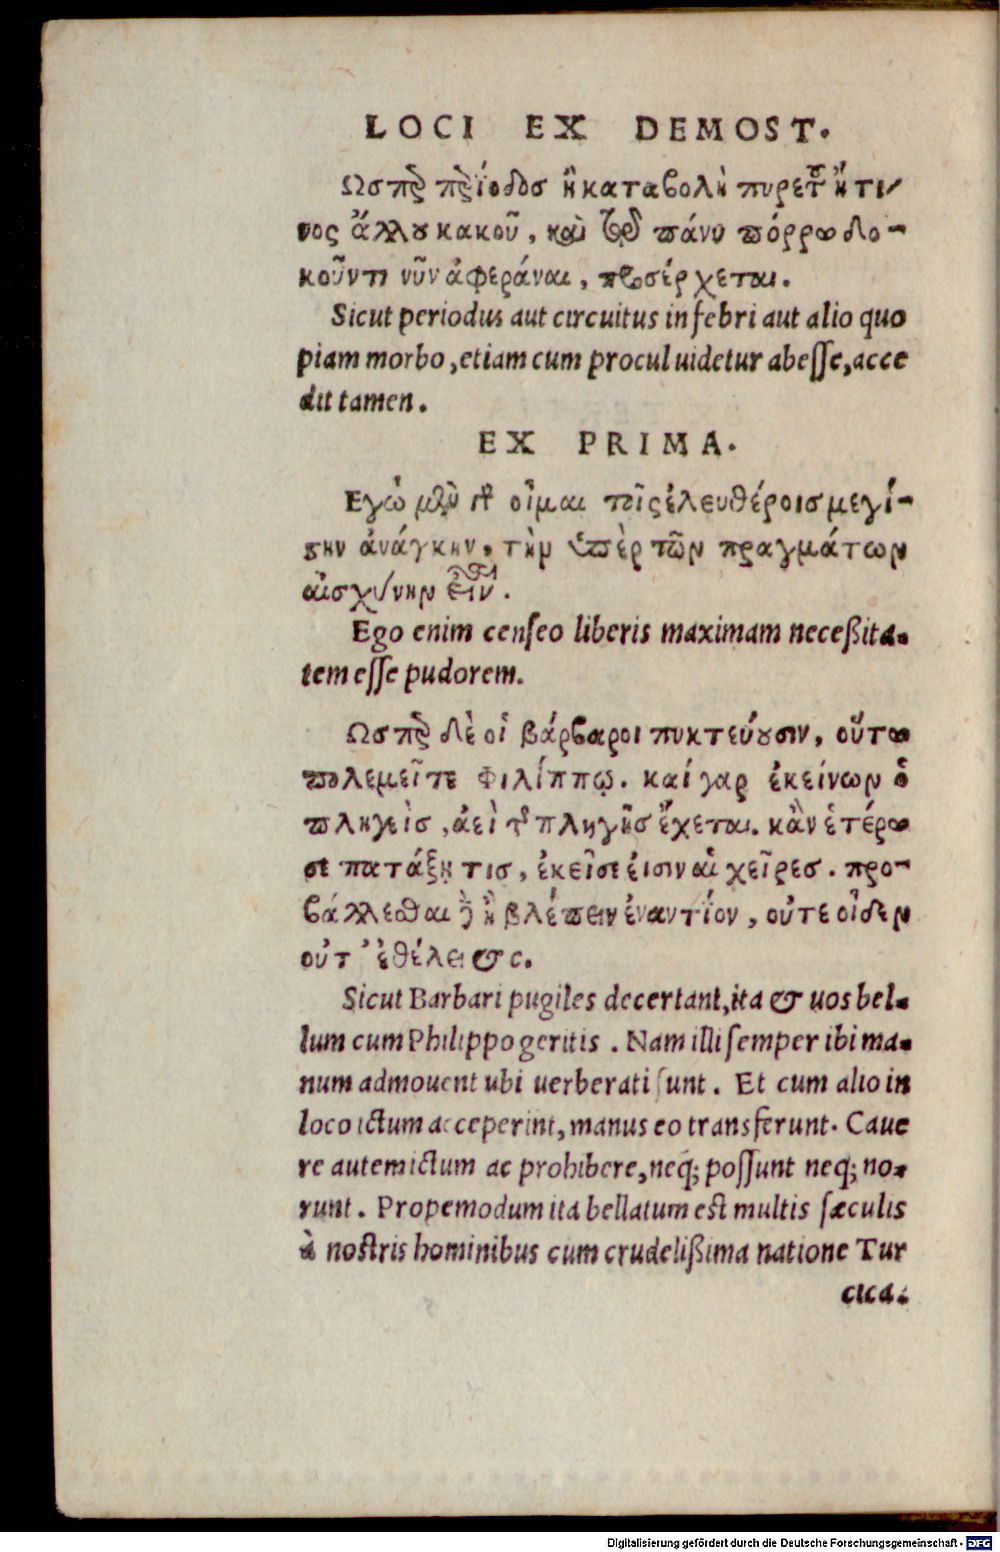 LOCI EX DEMOST.
Ωσπερ περίοδοσ ἢ καταβολὴ πυρετοῦ ἤ τι-
νος ἄλλου κακοῦ, καὶ τῷ πάνυ πόρρω δο-
κοῦντι νῦν ἀφεράναι, προσέρχεται.
Sicut periodus aut circuitus in febri aut alio quo
piam morbo, etiam cum procul uidetur abesse, acce
dit tamen.
EX PRIMA.
Εγὼ μὲν γὰρ οἶμαι τοῖς ἐλευθέροισ μεγί-
στην ἀνάγκην, τὴν ὑπὲρ τῶν πραγμάτων
αἰσχύνην εἶναι.
Ego enim censeo liberis maximam neceßita-
tem esse pudorem.
Ωσπερ δὲ οἱ βάρβαροι πυκτεύουσιν, οὕτω
πολεμεῖτε Φιλίππῳ. καί γαρ ἐκείνων ὁ
πληγεὶσ, ἀεὶ τῆς πληγῆσ ἔχεται. κἂν ἑτέρω
σε πατάξῃ τισ, ἐκεῖσε εἰσιν αἱ χεῖρεσ. προ-
βάλλεσθαι δ' ἢ βλέπειν ἐναντίον, οὔτε οἶδεν
οὔτ' ἐθέλει &c.
Sicut Barbari pugiles decertant, ita & uos bel-
lum cum Philippo geritis. Nam illi semper ibi ma-
num admouent ubi uerberati sunt. Et cum alio in
loco ictum acceperint, manus eo transferunt. Caue
re autem ictum ac prohibere, neq; possunt neq; no-
runt. Propemodum ita bellatum est multis sæculis
à nostris hominibus cum crudelißima natione Tur
cica.
Digitalisierung gefördert durch die Deutsche Forschungsgemeinschaft - DFG